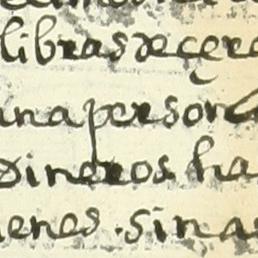 libras de çera
una persona
dineros ha
enes. sin as